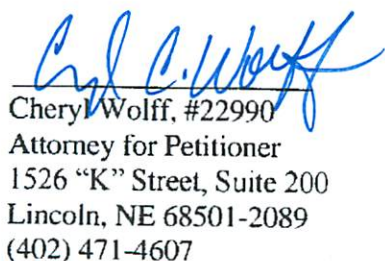 Cheryl C. Wolff
Cheryl Wolff, #22990
Attorney for Petitioner
1526 “K” Street, Suite 200
Lincoln, NE 68501-2089
(402) 471-4607